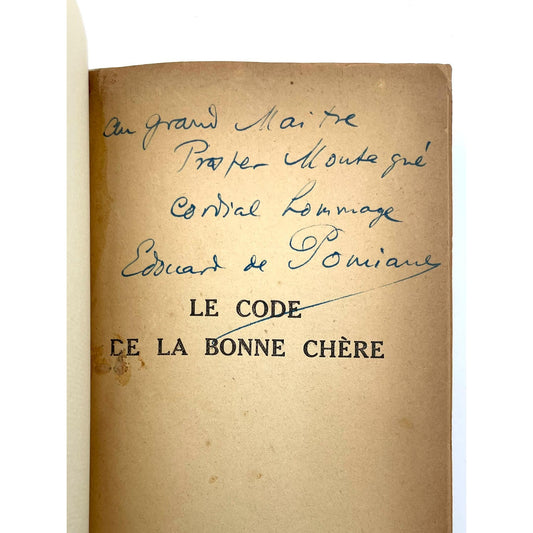 au grand Maitre
Prosper Montagné
Cordial hommage
Edouard de Pomiane
LE CODE
DE LA BONNE CHÈRE